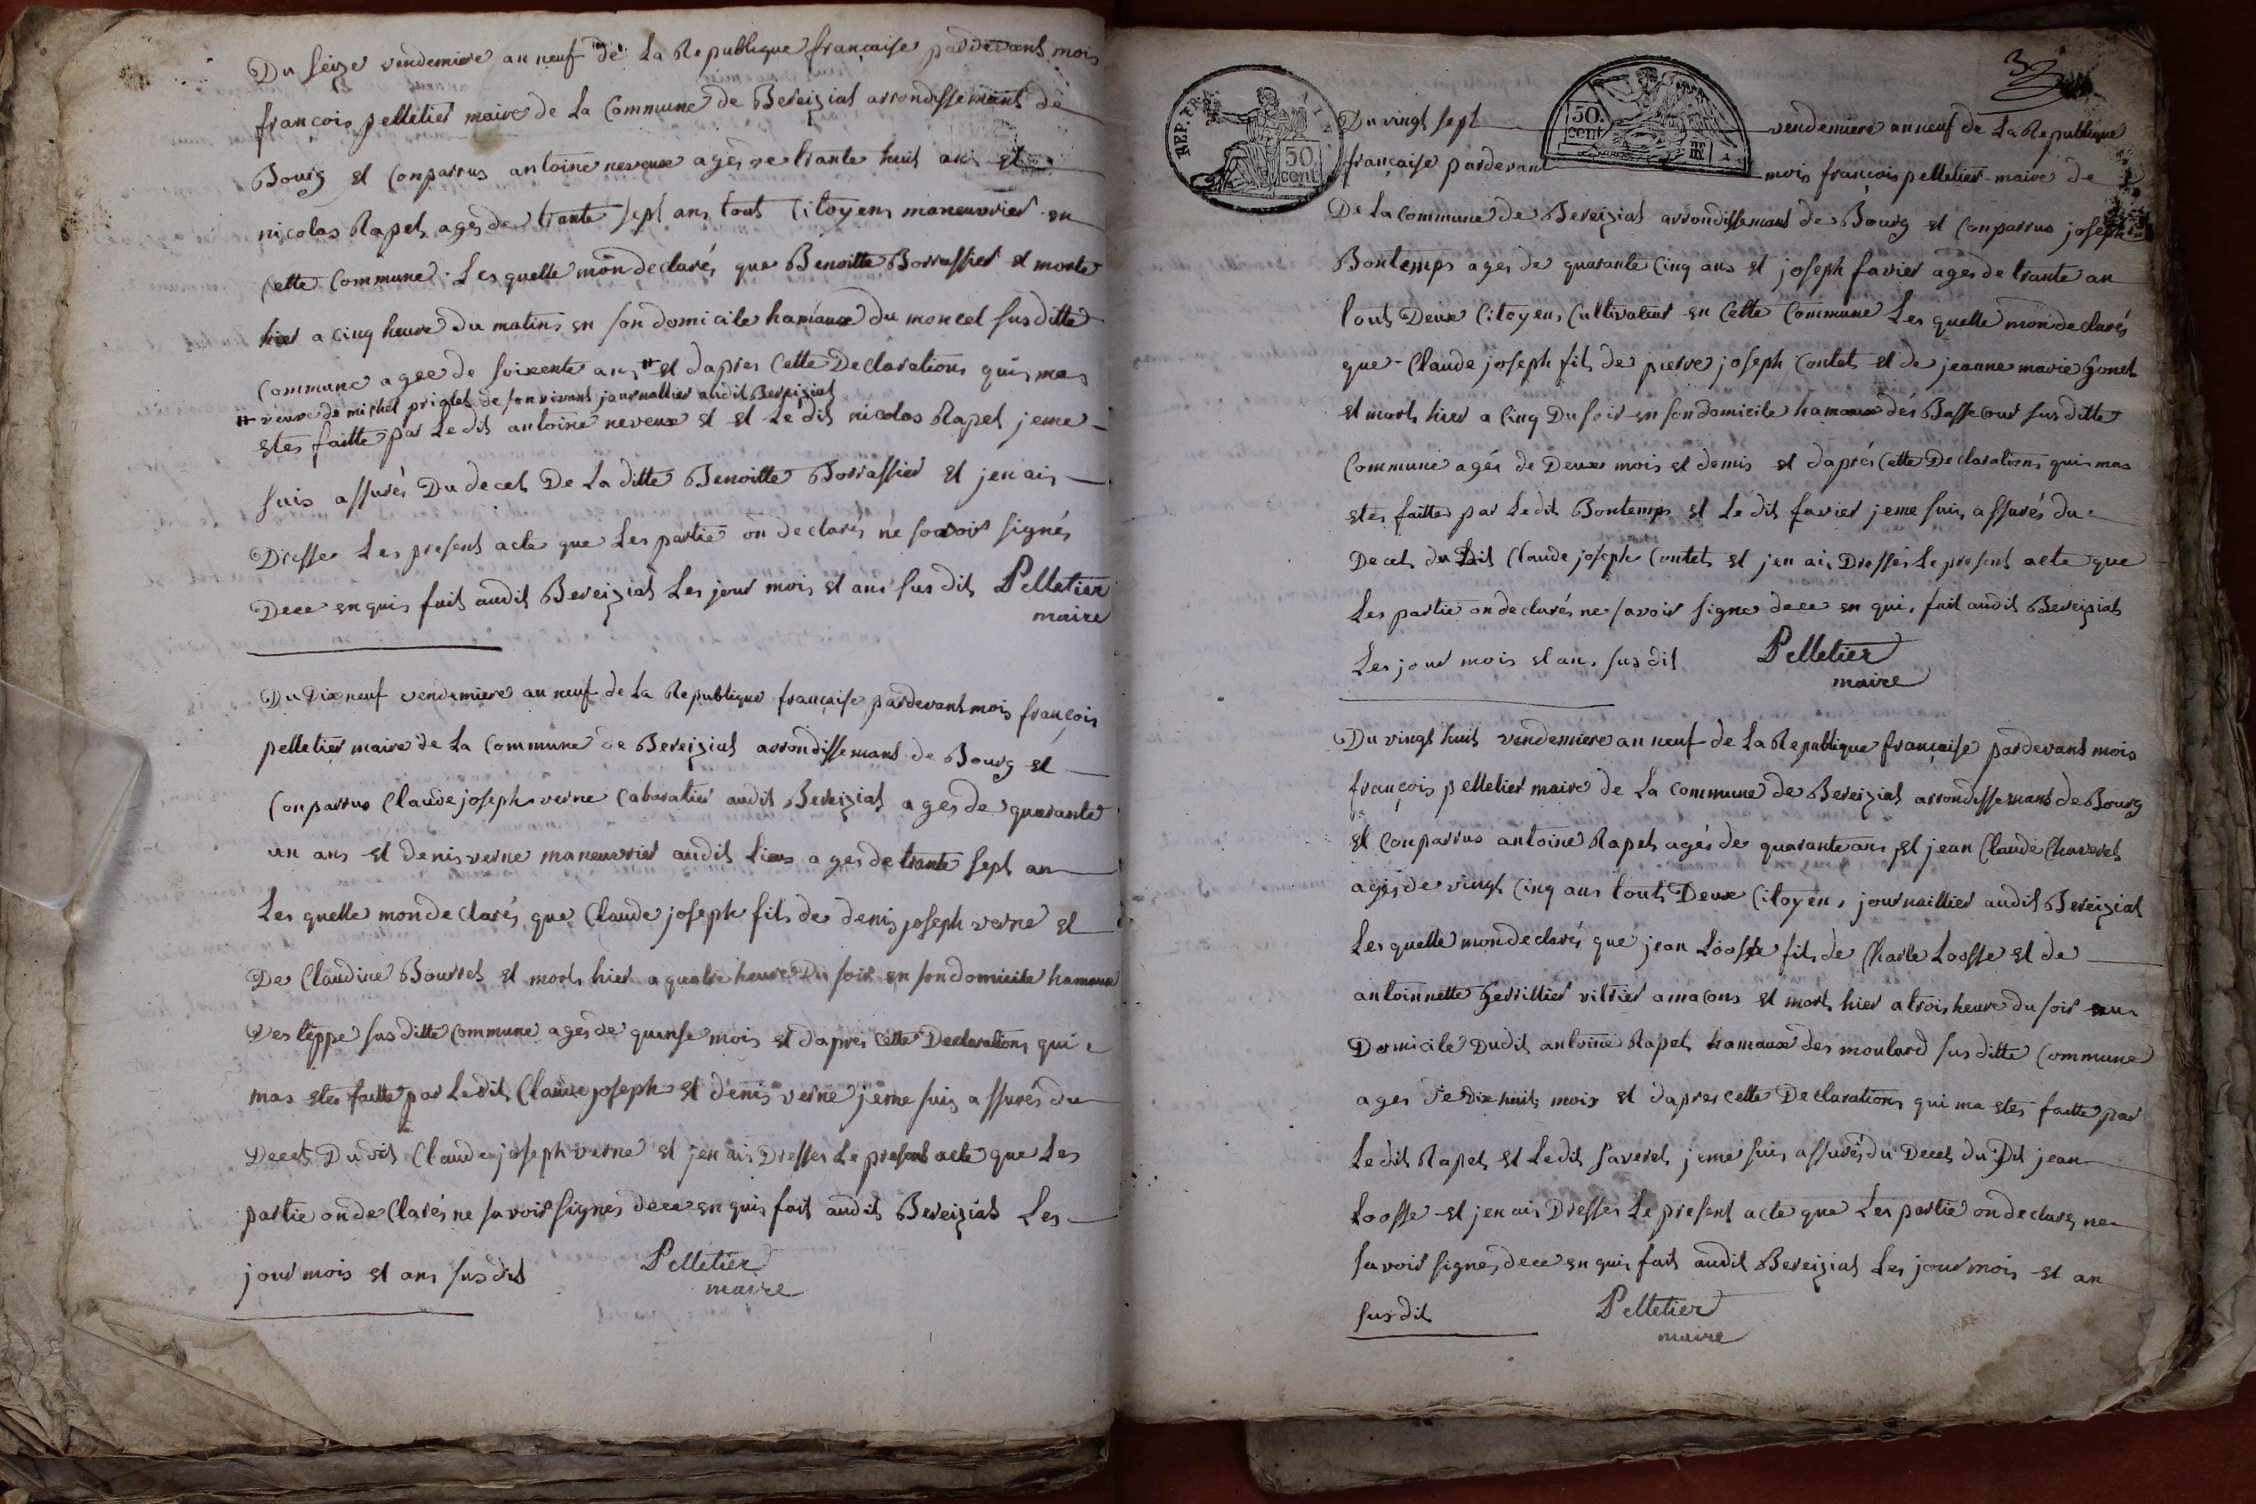 Du seize vendemiere an neuf de La Republique françaisse pardevant mois
françois pelletier maire de La Commune de Bereiziat arrondissemant de
Bourg et Conparrus antoine neveux agés de trante huit ans et
nicolas Rapet agés de trante sept ans tout Citoyens maneuvrier en
Cette Commune Les quelle mon declarés que Benoitte Borrassier et morte
hier a cinq heure du matins en son domicile hamaux du moncel susditte
Commune agée de soixente ans # et dapres Cette Declarations quis mas
# veuve de michel de son vivant journallier audit Bereiziat
etes faitte par Le dit antoine neveux et et Le dit nicolas Rapet je me
suis assurés Du decet De La ditte Benoitte Borrassier et jen ais
Dresser Les present acte que Les partie on declarés ne savoir signés
Dece en quis fait audit Bereiziat Les jour mois et ans sus dit Pelletier
maire
Du Dix neuf vendemiere an neuf de La Republique françaisse pardevant mois françois
pelletier maire de La Commune de Bereiziat arrondissemant de Bourg et
Conparrus Claude joseph verne Cabaratier audit Bereiziat ages de quarante
un ans et denis verne maneuvrier audit Lieux ages de trante sept an
Les quelle mon declarés que Claude joseph fils de denis joseph verne et
De Claudine Bourret et mort hier a quatre heure Du soir en son domicile hamaux
Des teppe susditte Commune ages de quinse mois et dapres Cette Declarations qui
mas etes faitte par Le dit Claude joseph et denis verne je me suis assurés du
Decet Dudit Claude joseph verne et jen ais Dresser Le present acte que Les
partie on declarés ne savoir signés dece en quis fait audit Bereiziat Les
jour mois et ans susdit Pelletier
maire
3
REP. FRA.
50. cent.
50. cent.
Du vingt sept vendemiere an neuf de La Republique
française pardevant mois françois pelletier maire de
De La Commune de Bereiziat arrondissemant de Bourg et Conparrus joseph
Bontemps ages de quarante Cinq ans et joseph favier ages de trante an
tout Deux Citoyens Cultivateur en Cette Commune Les quelle mon declarés
que Claude joseph fils de pierre joseph Contet et de jeanne marie gonet
et mort hier a Cinq Du soir en son domicile hamaux des Basse Cour sus ditte
Commune agés de Deux mois et demis et daprés Cette Declarations quis mas
etes faittes par Le dit Bontemps et Le dit favier je me suis assurés du
Decet du Dit Claude joseph Contet et jen ais Dressés Le present acte que
Les partie on declarés ne savoir signe dece en qui fait audit Bereiziat
Les jour mois et ans sus dit Pelletier
maire
Du vingt huit vendemiere an neuf de La Republique française pardevant mois
françois pelletier maire de La Commune de Bereiziat arrondissemant de Bourg
et Conparrus antoine Rapet agés de quarante ans et jean Claude
agés de vingt Cinq ans tout Deux Citoyens journaillier audit Bereiziat
Les quelle mon declarés que jean Loosse fils de Charle Loosse et de
antoinnette vitrier a macons et mort hier a trois heure du soir au
Domicile Dudit antoine Rapet hamaux des moulard sus ditte Commune
ages de Dix huit mois et dapres Cette Declarations qui ma etés faitte par
Le dit Rapet et Le dit Saveret je me suis assurés du Decet du Dit jean
Loosse et jen ais Dresser Le present acte que Les partie on declarés ne
savoir signés dece en quis fait audit Bereiziat Les jour mois et an
sus dit Pelletier
maire